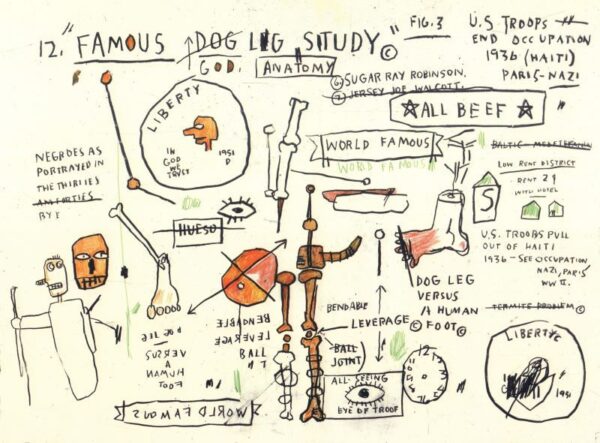 12. "FAMOUS DOG LEG STUDY" ©
FIG. 3
GOD.
ANATOMY
⑥ SUGAR RAY ROBINSON.
⑦ JERSEY JOE WALCOTT.
U.S. TROOPS
END OCCUPATION
1936 (HAITI)
PARIS-NAZI
"
☆ ALL BEEF ☆
LIBERTY
IN
GOD
WE
TRUST
1951
D
WORLD FAMOUS
WORLD FAMOUS
NEGROES AS
PORTRAYED IN
THE THIRTIES
BY
HUESO
BALTIC-MEDETERANIN
LOW RENT DISTRICT
RENT 29
WITH HOTEL
S
U.S. TROOBS PULL
OUT OF HAITI
1936 - SEE OCCUPATION
NAZI, PARIS
WW II.
TERMITE PROBLEM ©
DOG LEG
VERSUS
A HUMAN
© FOOT ©
BENDABLE
LEVERAGE
BALL
JOINT
BENDABLE
LEVERAGE
BALL
DOG LEG
VERSUS
HUMAN
FOOT
ALL-SEEING
EYE OF TROOF
12
WORLD FAMOUS
LIBERTY ©
1951